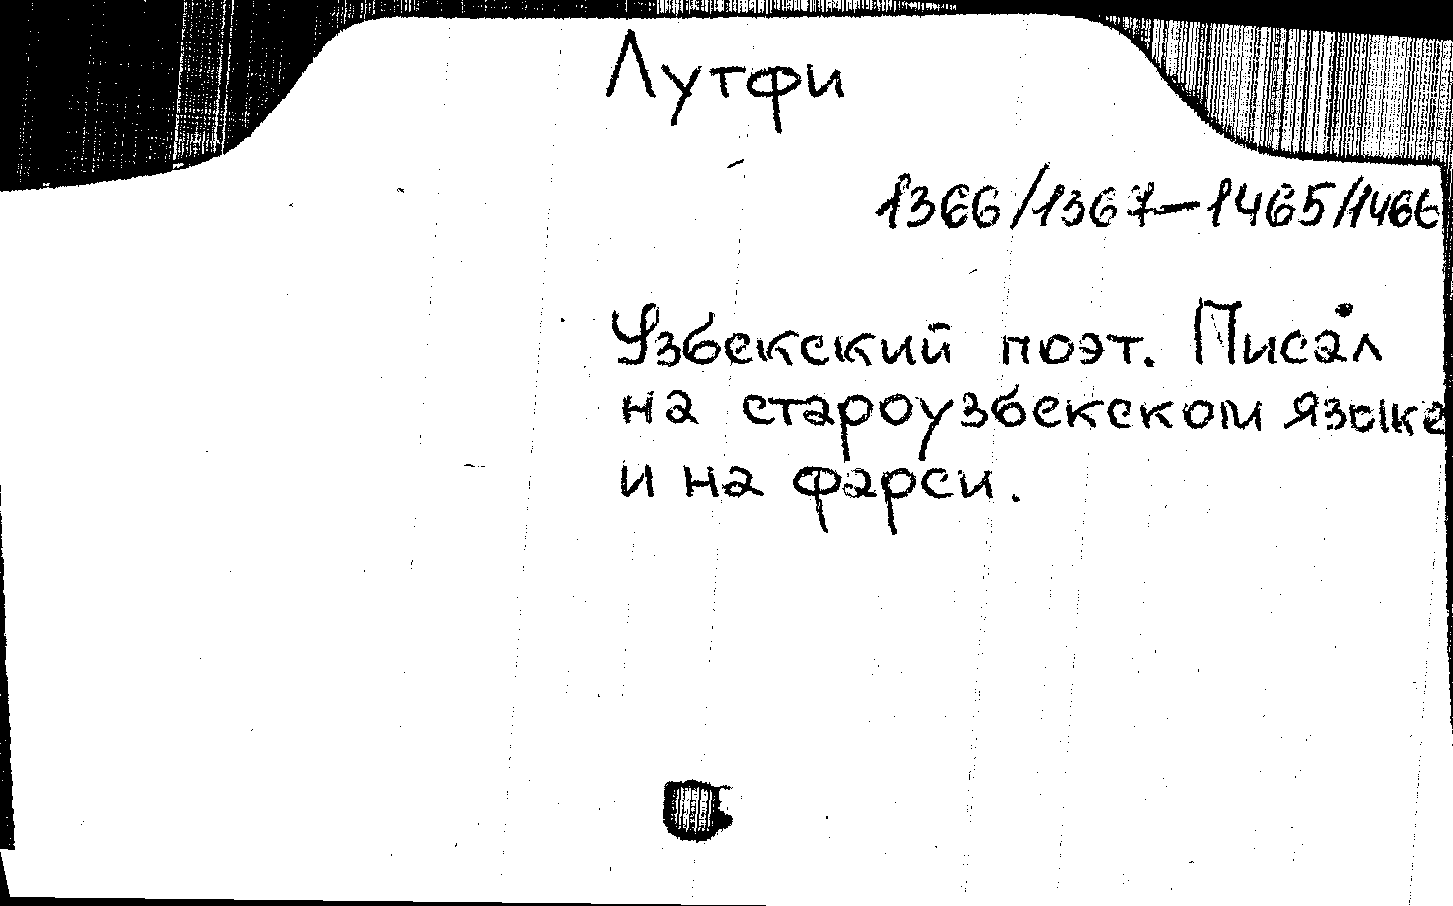 Лутфи
1366/1367-1465/1466
Узбекский поэт. Писал
на староузбекском языке
и на фарси.